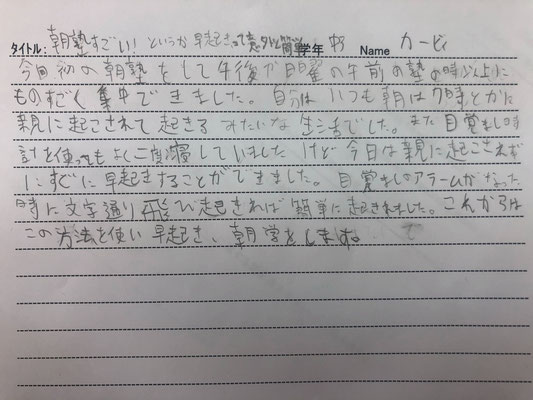 タイトル: 朝塾すごい! というか早起きって意外と簡単 学年 中3 Name カービィ
今回初の朝塾をして午後か日曜の午前の塾の時以上に
ものすごく集中できました。自分はいつも朝は7時とかに
親に起こされて起きるみたいな生活でした。また目覚まし時
計を使ってもよく二度寝していましたけど今日は親に起こされず
にすぐに早起きすることができました。目覚ましアラームがなった
時に文字通り飛び起きれば簡単に起きれました。これからは
この方法を使い早起き、朝学をします。